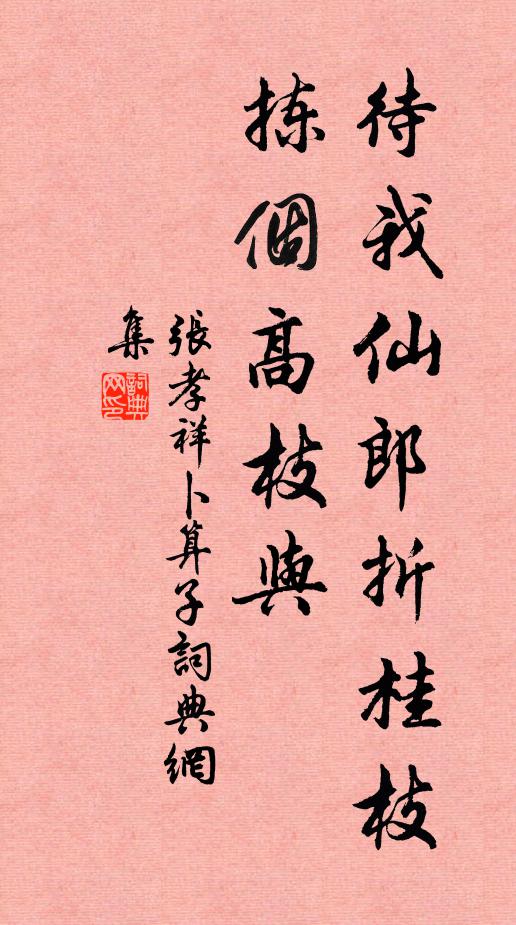 待我仙郎折桂枝
揀個高枝與
張孝祥卜算子詞典網
集
詞典
网印